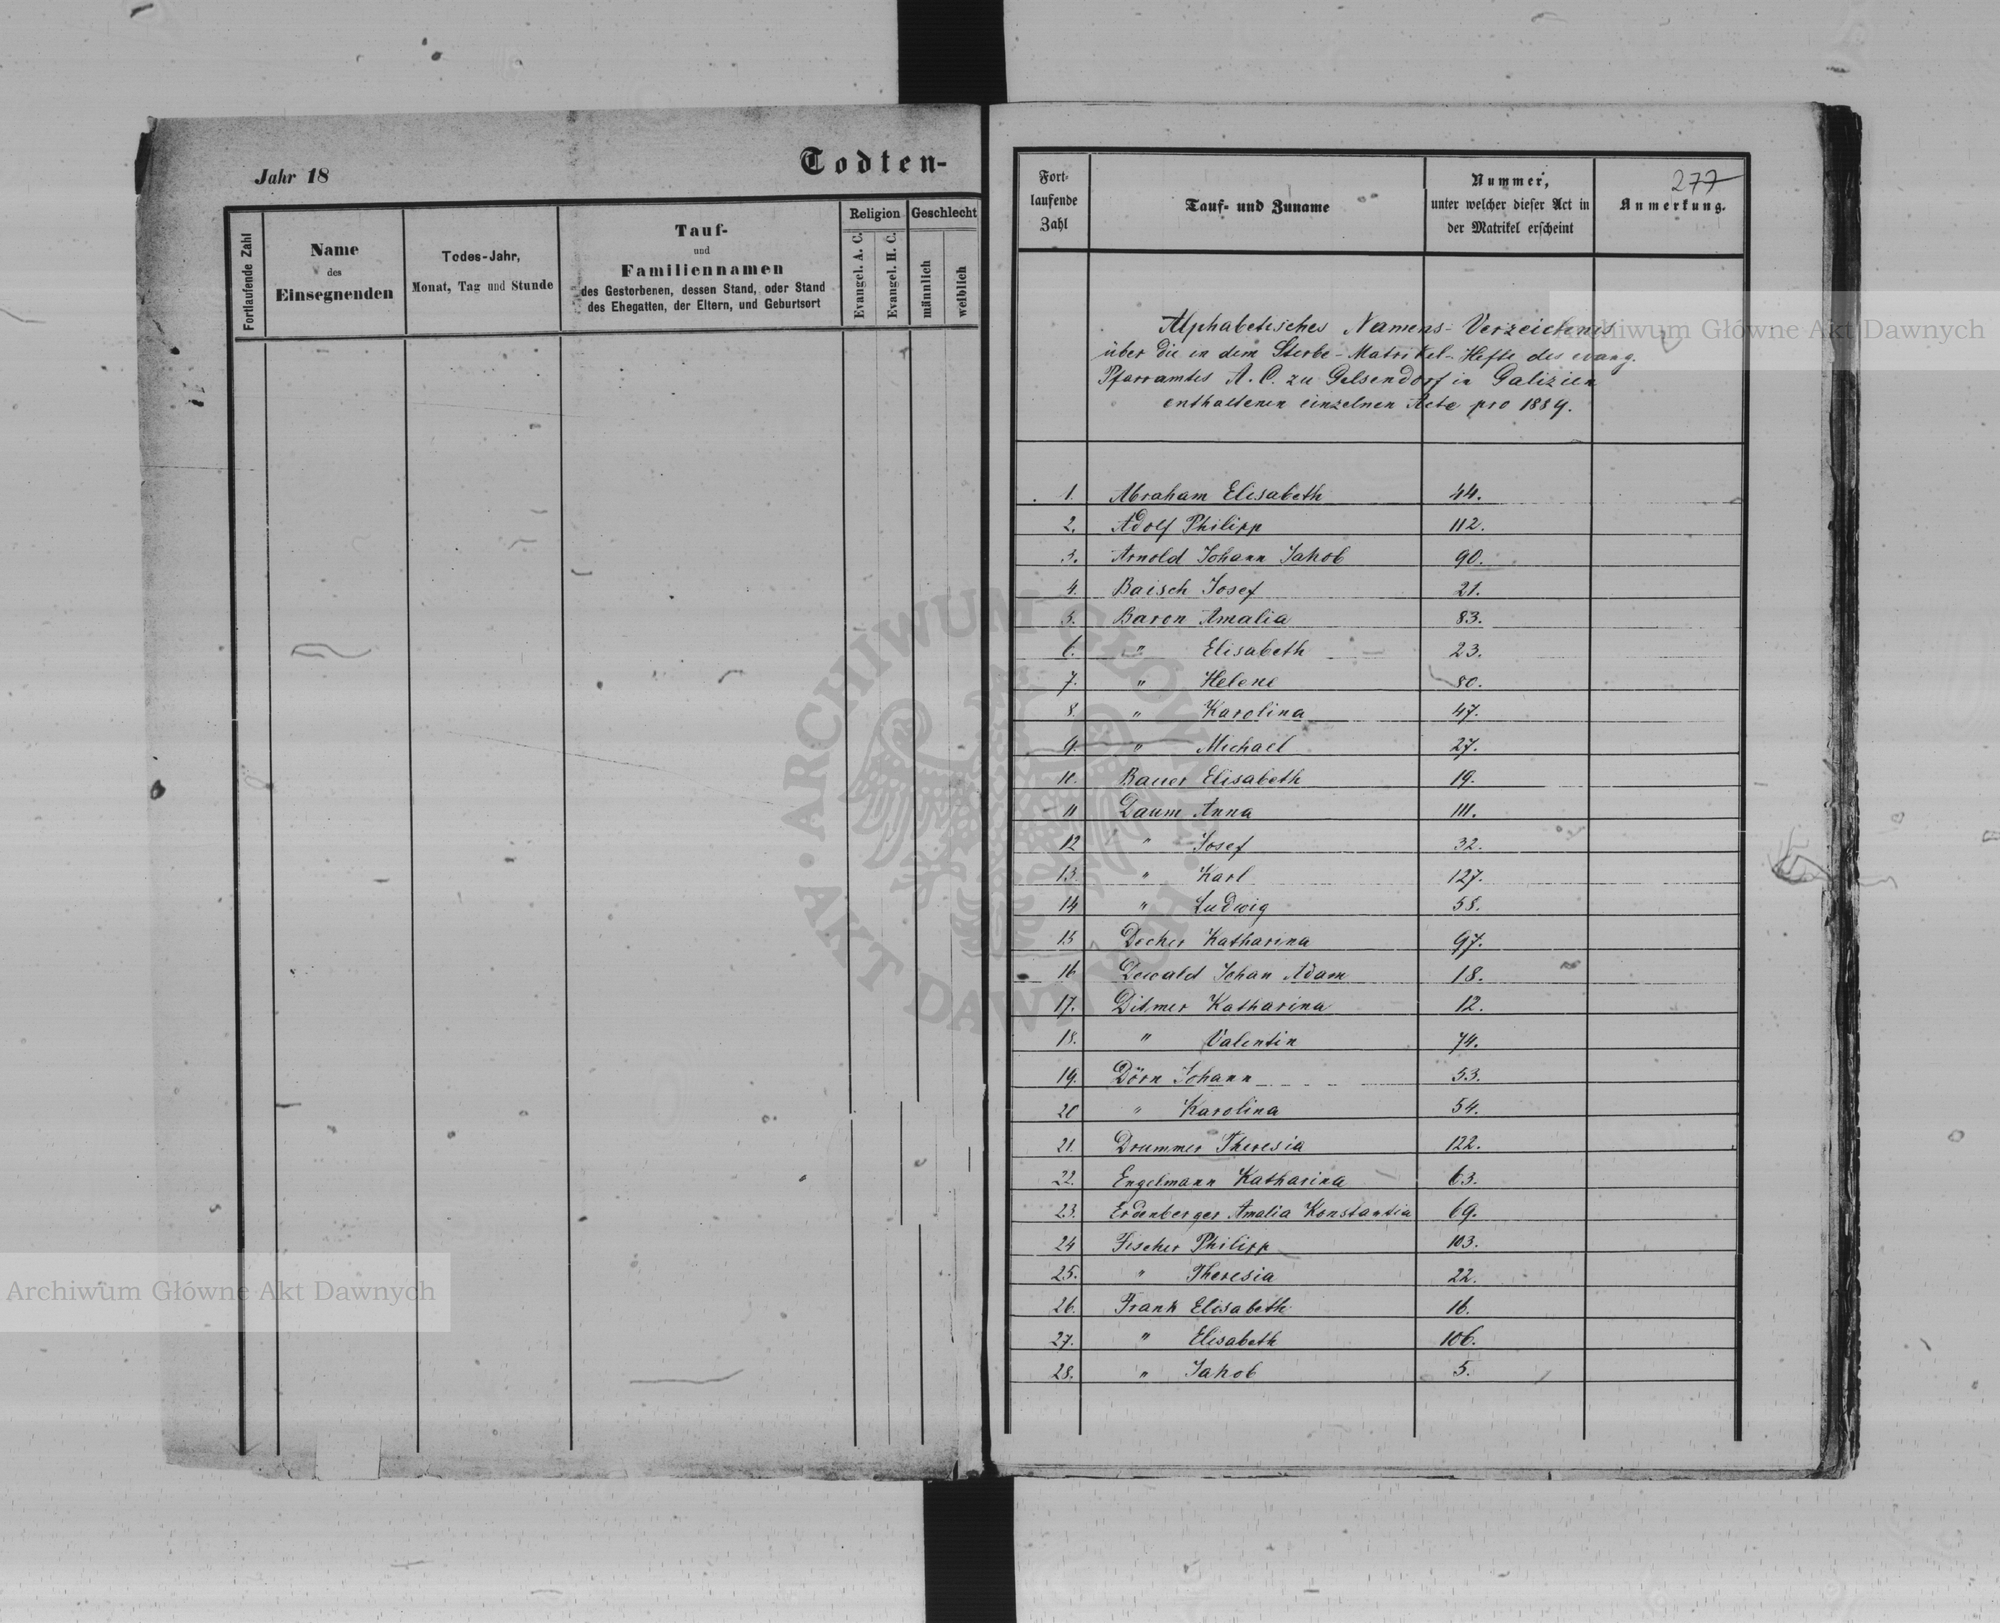 Jahr 18
Todten-
Fortlaufende Zahl
Name
des
Einsegnenden
Todes-Jahr,
Monat, Tag und Stunde
Tauf-
und
Familiennamen
des Gestorbenen, dessen Stand, oder Stand
des Ehegatten, der Eltern, und Geburtsort
Religion
Evangel. A. C.
Evangel. H. C.
Geschlecht
männlich
weiblich
277
Fort-
laufende
Zahl
Tauf- und Zuname
Nummer,
unter welcher dieser Act in
der Matrikel erscheint
Anmerkung.
Alphabetisches Namens-Verzeichniss
über die in dem Sterbe-Matrikel-Hefte des evang.
Pfarramtes A. C. zu Gelsendorf in Galizien
enthaltenen einzelnen Acte pro 1889.
1. Abraham Elisabeth 44.
2. Adolf Philipp 112.
3. Arnold Johann Jakob 90.
4. Baisch Josef 21.
5. Baron Amalia 83.
6. " Elisabeth 23.
7. " Helene 80.
8. " Karolina 47.
9. " Michael 27.
10. Bauer Elisabeth 19.
11 Daum Anna 111.
12 " Josef 32.
13. " Karl 127.
14 " Ludwig 58.
15 Decker Katharina 97.
16 Dewald Johan Adam 18.
17. Ditmer Katharina 12.
18. " Valentin 74.
19. Dörn Johann 53.
20 " Karolina 54.
21. Drummer Theresia 122.
22. Engelmann Katharina 63.
23. Erdenberger Amalia Konstantia 69.
24 Fischer Philipp 103.
25. " Theresia 22.
26. Frank Elisabeth 16.
27. " Elisabeth 106.
28. " Jakob 5.
Archiwum Główne Akt Dawnych
Archiwum Główne Akt Dawnych
ARCHIWUM GŁÓWNE
AKT DAWNYCH